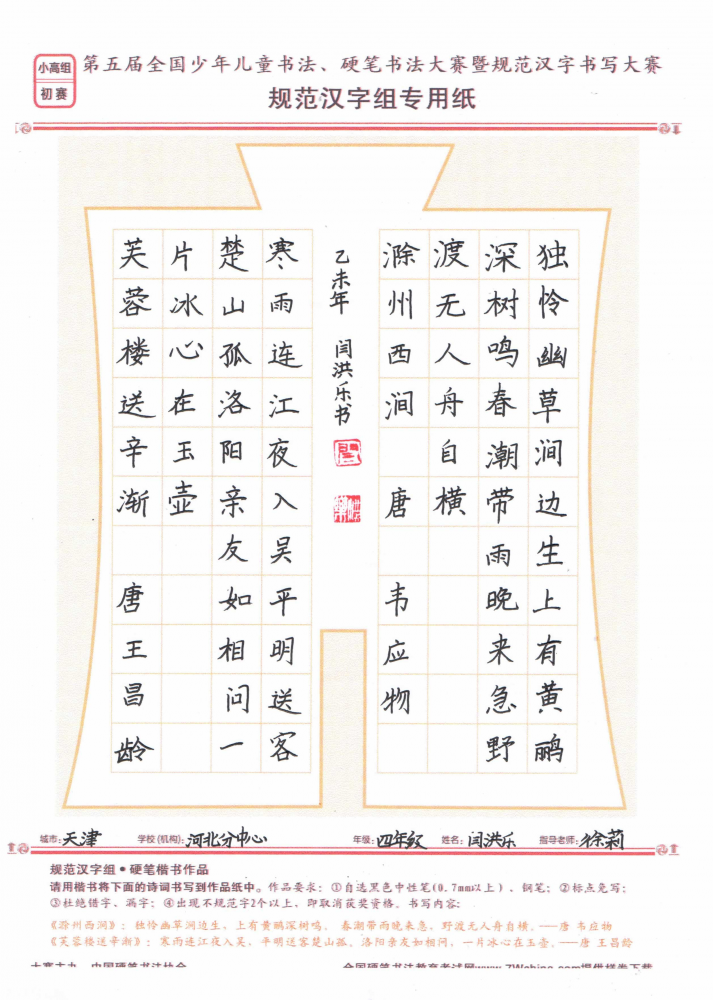 小高组
初赛
第五届全国少年儿童书法、硬笔书法大赛暨规范汉字书写大赛
规范汉字组专用纸
独怜幽草涧边生上有黄鹂
深树鸣春潮带雨晚来急野
渡无人舟自横
滁州西涧 唐 韦应物
乙未年 闫洪乐书
寒雨连江夜入吴平明送客
楚山孤洛阳亲友如相问一
片冰心在玉壶
芙蓉楼送辛渐 唐王昌龄
城市：天津 学校(机构)：河北分中心 年级：四年级 姓名：闫洪乐 指导老师：徐莉
规范汉字组•硬笔楷书作品
请用楷书将下面的诗词书写到作品纸中。作品要求：①自选黑色中性笔(0.7mm以上)、钢笔；②标点免写；
③杜绝错字、漏字；④出现不规范字2个以上，即取消获奖资格。书写内容：
《滁州西涧》：独怜幽草涧边生，上有黄鹂深树鸣。 春潮带雨晚来急，野渡无人舟自横。——唐 韦应物
《芙蓉楼送辛渐》：寒雨连江夜入吴，平明送客楚山孤。洛阳亲友如相问，一片冰心在玉壶。——唐 王昌龄